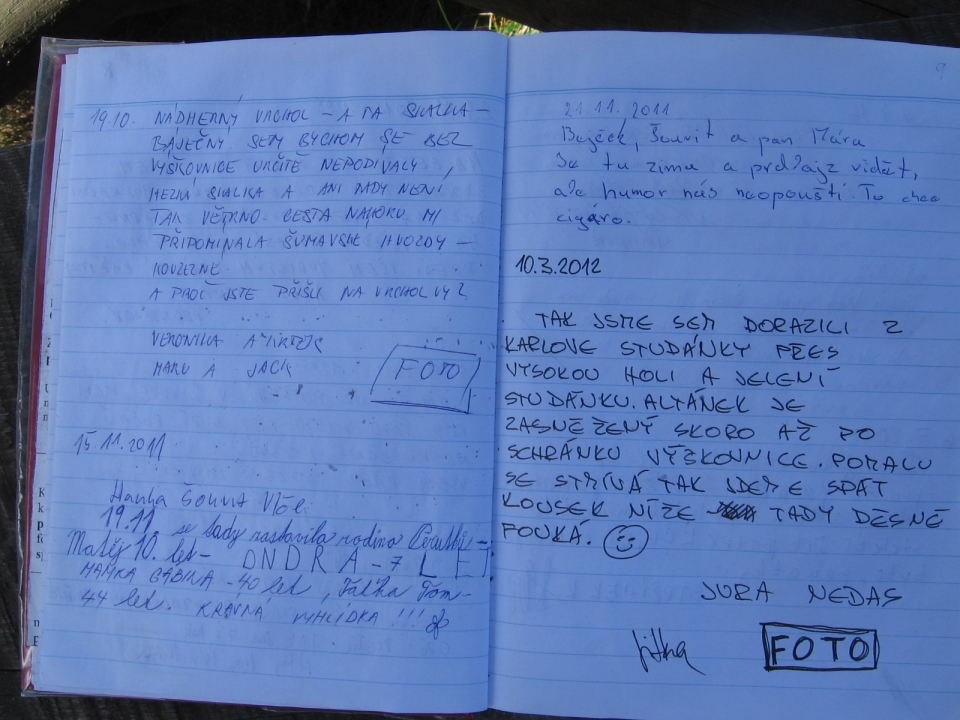 19.10. NÁDHERNÝ VRCHOL - A TA SKALKA -
BÁJEČNÝ SEM BYCHOM SE BEZ
VÝŠKOVNICE URČITĚ NEPODÍVALY
HEZKÁ SKALKA A ANI TADY NENÍ
TAK VĚTRNO. CESTA NAHORU MI
PŘIPOMÍNALA ŠUMAVSKÉ HVOZDY -
KOUZELNÉ.
A PROČ JSTE PŘIŠLI NA VRCHOL VY?
VERONIKA
A JACK
FOTO
15.11.2011
Hanka
19.11. se tady nastavila rodina
Matěj 10. let - ONDRA - 7 LET,
MAMKA GÁBINA - 40 let, Taťka Tom -
44 let. KRÁSNÁ VYHLÍDKA !!!
9
21.11.2011
a pan Mára
Je tu zima a vidět,
ale humor nás neopouští. To chce
cigáro.
10.3.2012
TAK JSME SEM DORAZILI Z
KARLOVE STUDÁNKY PŘES
VYSOKOU HOLI A JELENÍ
STUDÁNKU. ALTÁNEK JE
ZASNĚŽENÝ SKORO AŽ PO
SCHRÁNKU VÝŠKOVNICE. POMALU
SE STMÍVÁ TAK JDEME SPÁT
KOUSEK NÍŽE TADY DĚSNĚ
FOUKÁ.
JURA NEDAS
Jitka
FOTO